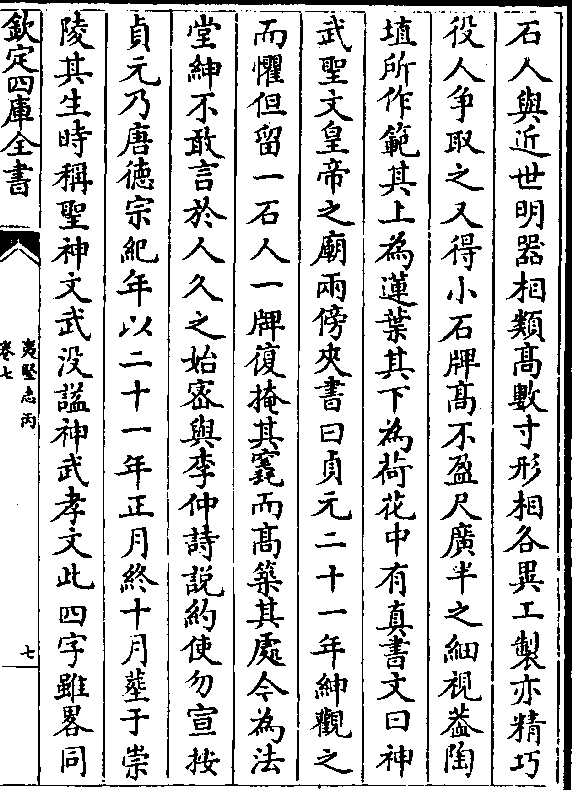 石人與近世明器相類髙數寸形相各異工製亦精巧
役人争取之又得小石牌髙不盈尺廣半之細視葢陶
埴所作範其上為蓮葉其下為荷花中有真書文曰神
武聖文皇帝之廟兩傍夾書曰貞元二十一年紳觀之
而懼但留一石人一牌復掩其竁而髙築其處今為法
堂紳不敢言於人久之始宻與李仲詩説約使勿宣按
貞元乃唐徳宗紀年以二十一年正月終十月葬于崇
陵其生時稱聖神文武没諡神武孝文此四字雖畧同
欽定四庫全書
夷堅志丙
卷七
七